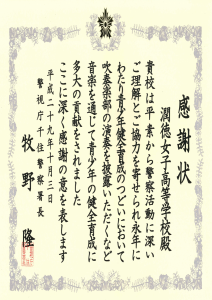 感謝状
潤徳女子高等学校殿
貴校は平素から警察活動に深い
ご理解とご協力を寄せられ永年に
わたり青少年健全育成のつどいにおいて
吹奏楽部の演奏を披露いただくなど
音楽を通じて青少年の健全育成に
多大の貢献をされました
ここに深く感謝の意を表します
平成二十九年十月三日
警視庁千住警察署長
牧野隆